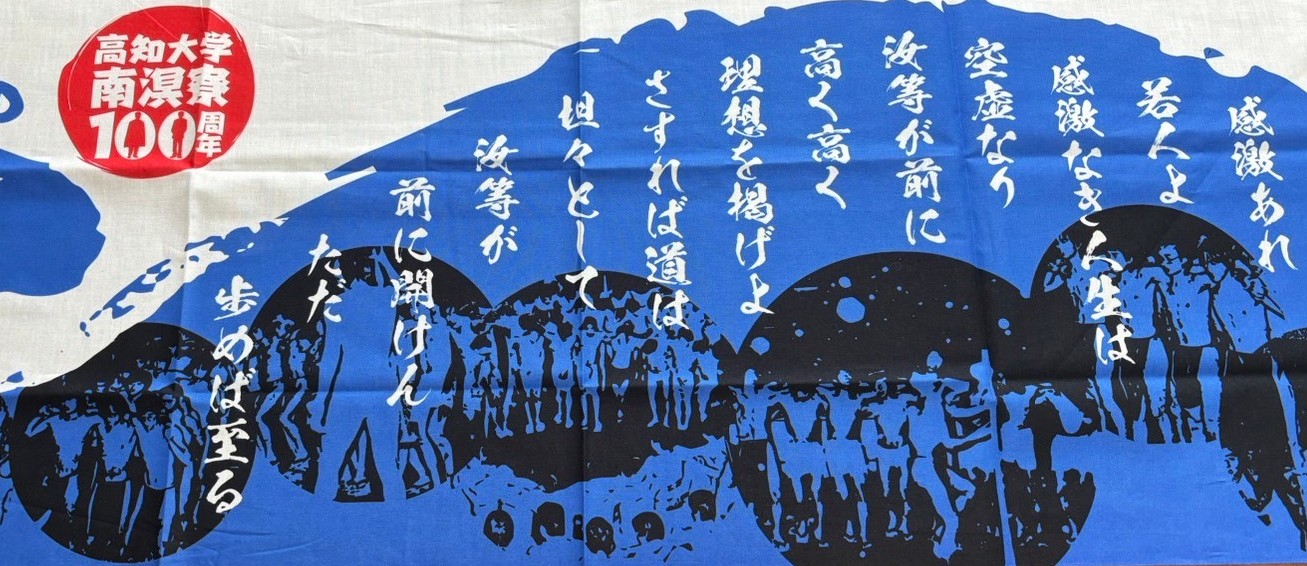 感激あれ
若人よ
感激なき人生は
空虚なり
汝等が前に
高く高く
理想を掲げよ
さすれば道は
坦々として
汝等が
前に開けん
ただ
歩めば至る
高知大学
南溟寮
100周年